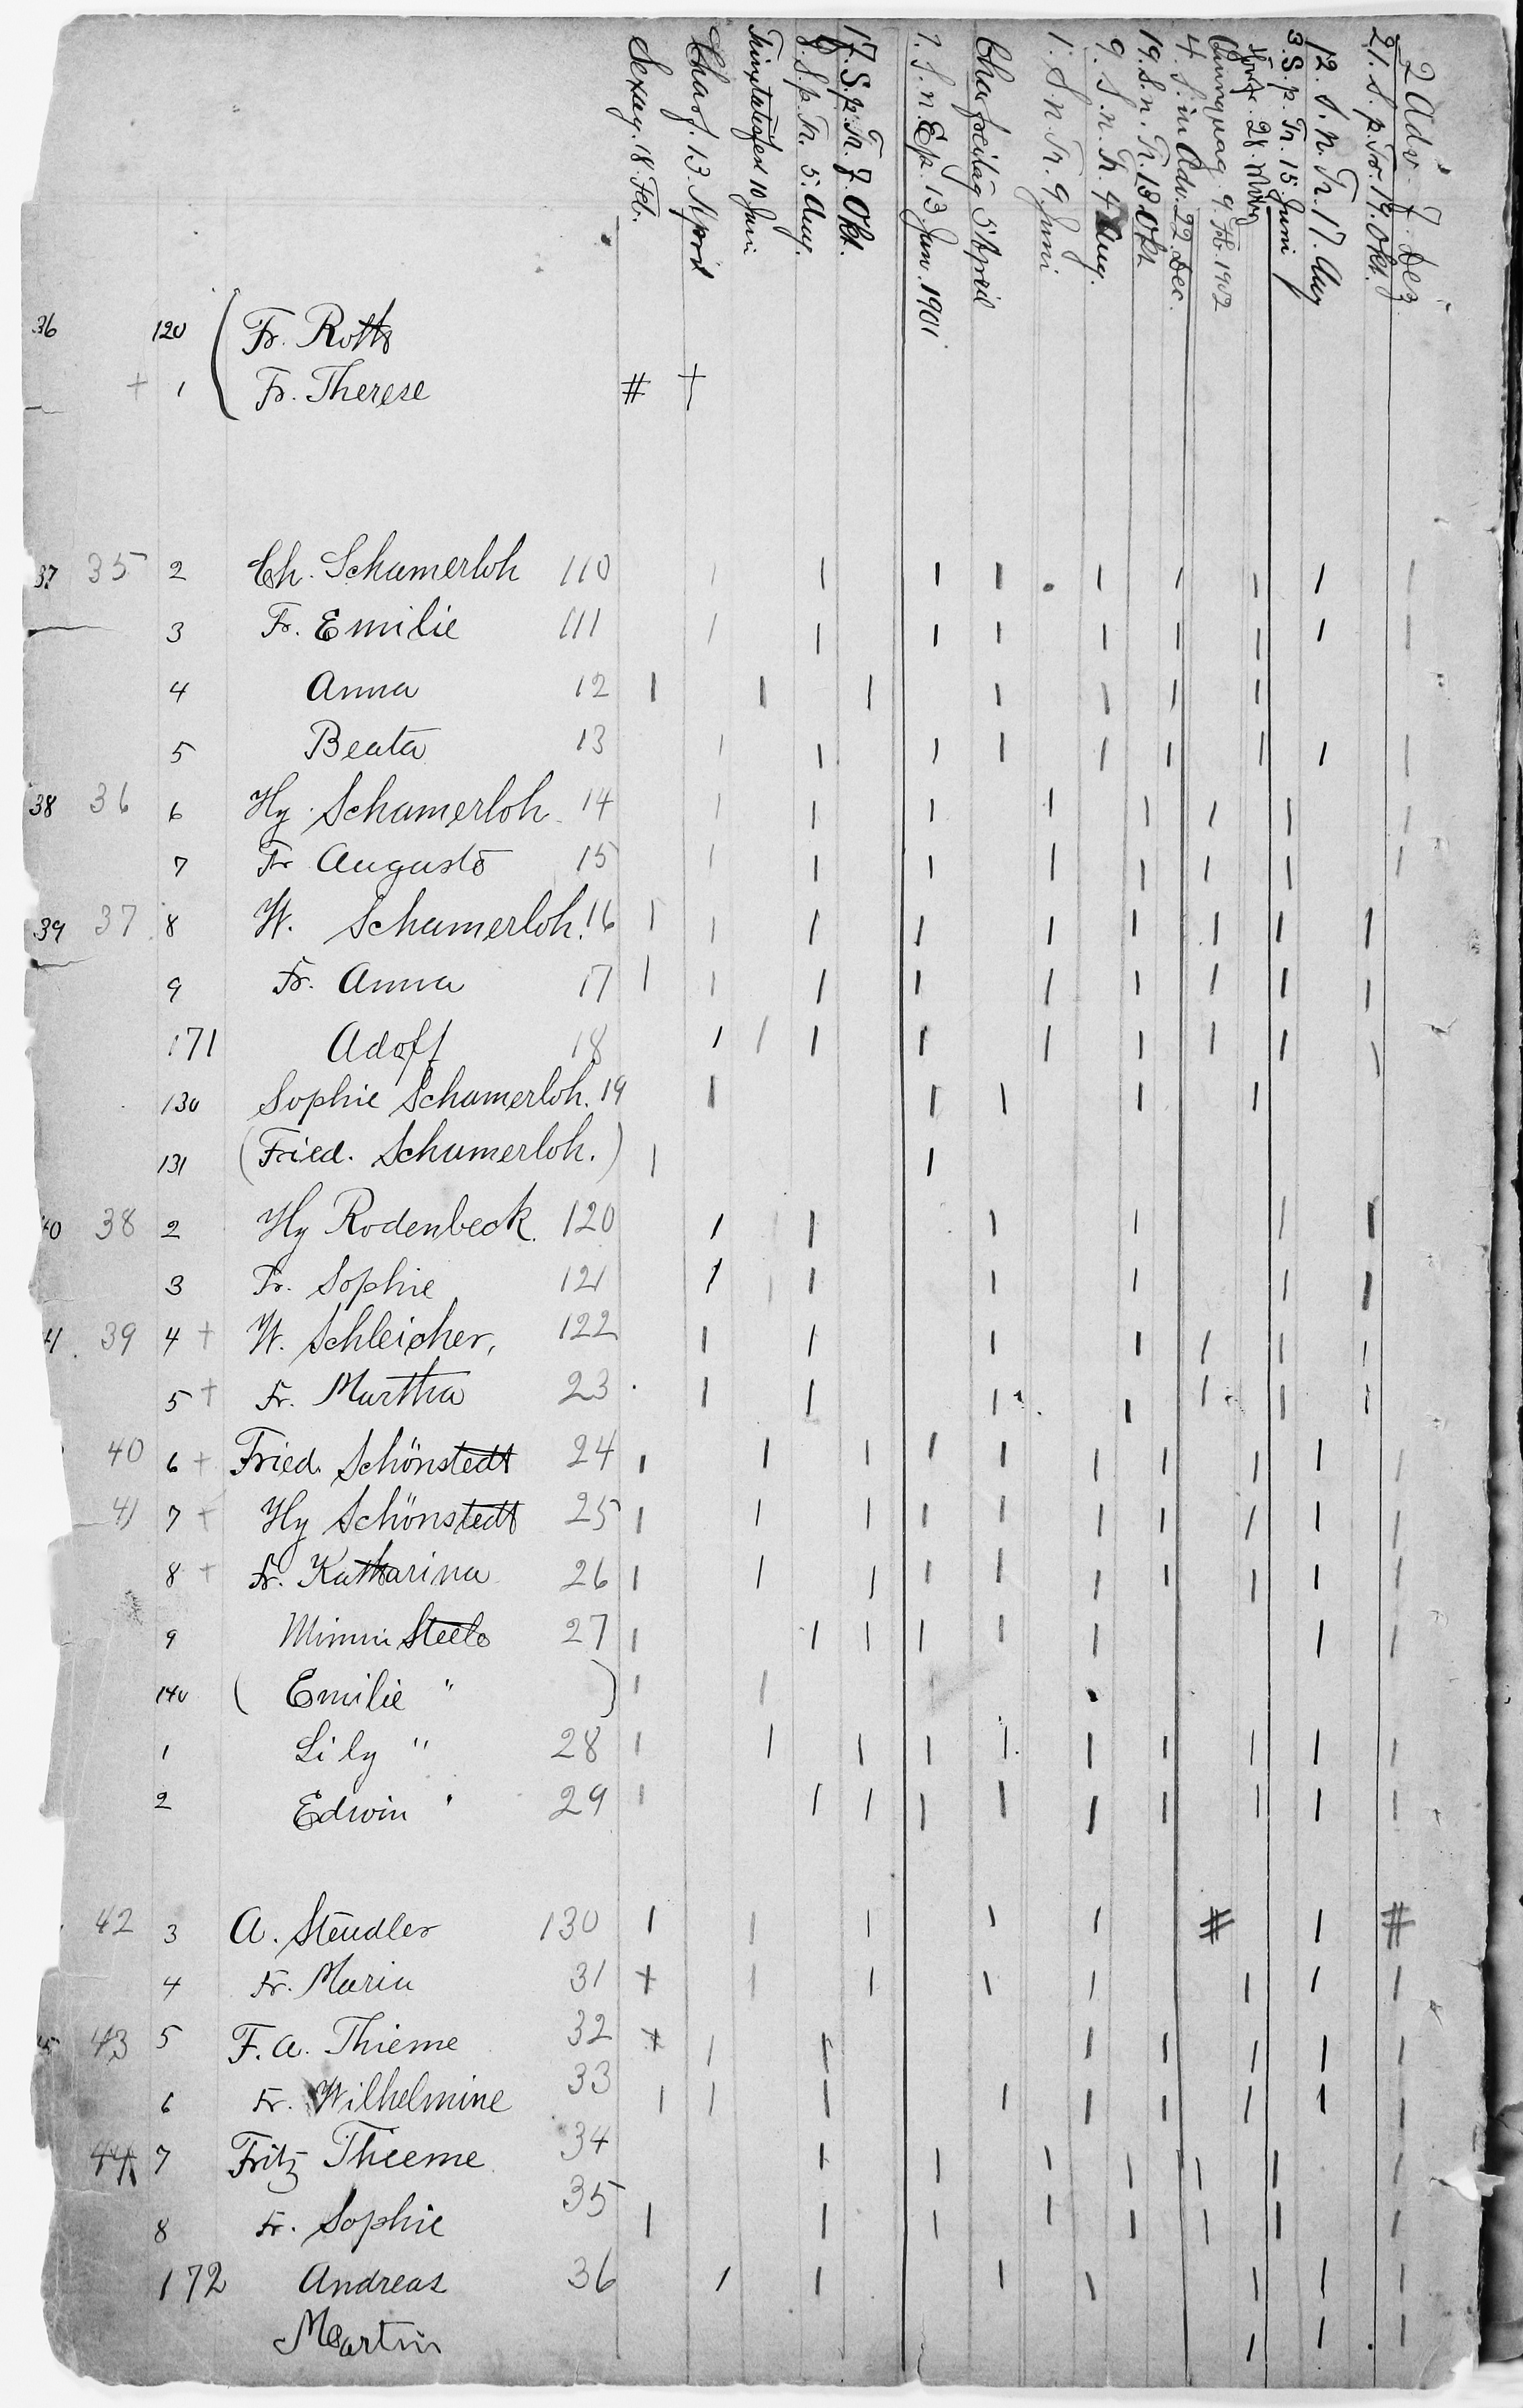 Sexag. 18. Feb.
Charf. 13. April
Trinitatisfest 10 Juni
8. S. p. Tr. 5. Aug.
17. S. p. Tr. 7. Okt.
1. S. n. Ep. 13 Jan. 1901
Charfreitag 5 April
1. S. n. Tr. 9 Juni
9. S. n. Tr. 4 Aug.
19. S. n. Tr. 13 Okt
4. S. in Adv. 22 Dec.
Quinquag. 9. Feb. 1902
28. März
3. S. p. Tr. 15 Juni
12. S. n. Tr. 17. Aug
21. S. p. Tr. 19. Okt.
2 Adv. 7 Dez.
36 120 ( Fr. Roth
+ 1 Fr. Therese # +
37 35 2 Ch. Schamerloh 110
3 Fr. Emilie 111
4 Anna 12
5 Beata 13
38 36 6 Hy. Schamerloh 14
7 Fr Auguste 15
39 37 8 W. Schamerloh. 16
9 Fr. Anna 17
171 Adolf 18
130 Sophie Schamerloh. 19
131 (Fried. Schamerloh.)
40 38 2 Hy Rodenbeck. 120
3 Fr. Sophie 121
41 39 4 + W. Schleicher, 122
5 + Fr. Martha 23
40 6 + Fried. Schönstedt 24
41 7 + Hy Schönstedt 25
8 + Fr. Katharina 26
9 Minnie Steele 27
140 ( Emilie " )
1 Lily " 28
2 Edwin " 29
42 3 A. Steudler 130 # #
4 Fr. Maria 31 +
43 5 F. A. Thieme 32 +
6 Fr. Wilhelmine 33
44 7 Fritz Thieme 34
8 Fr. Sophie 35
172 Andreas 36
Martin